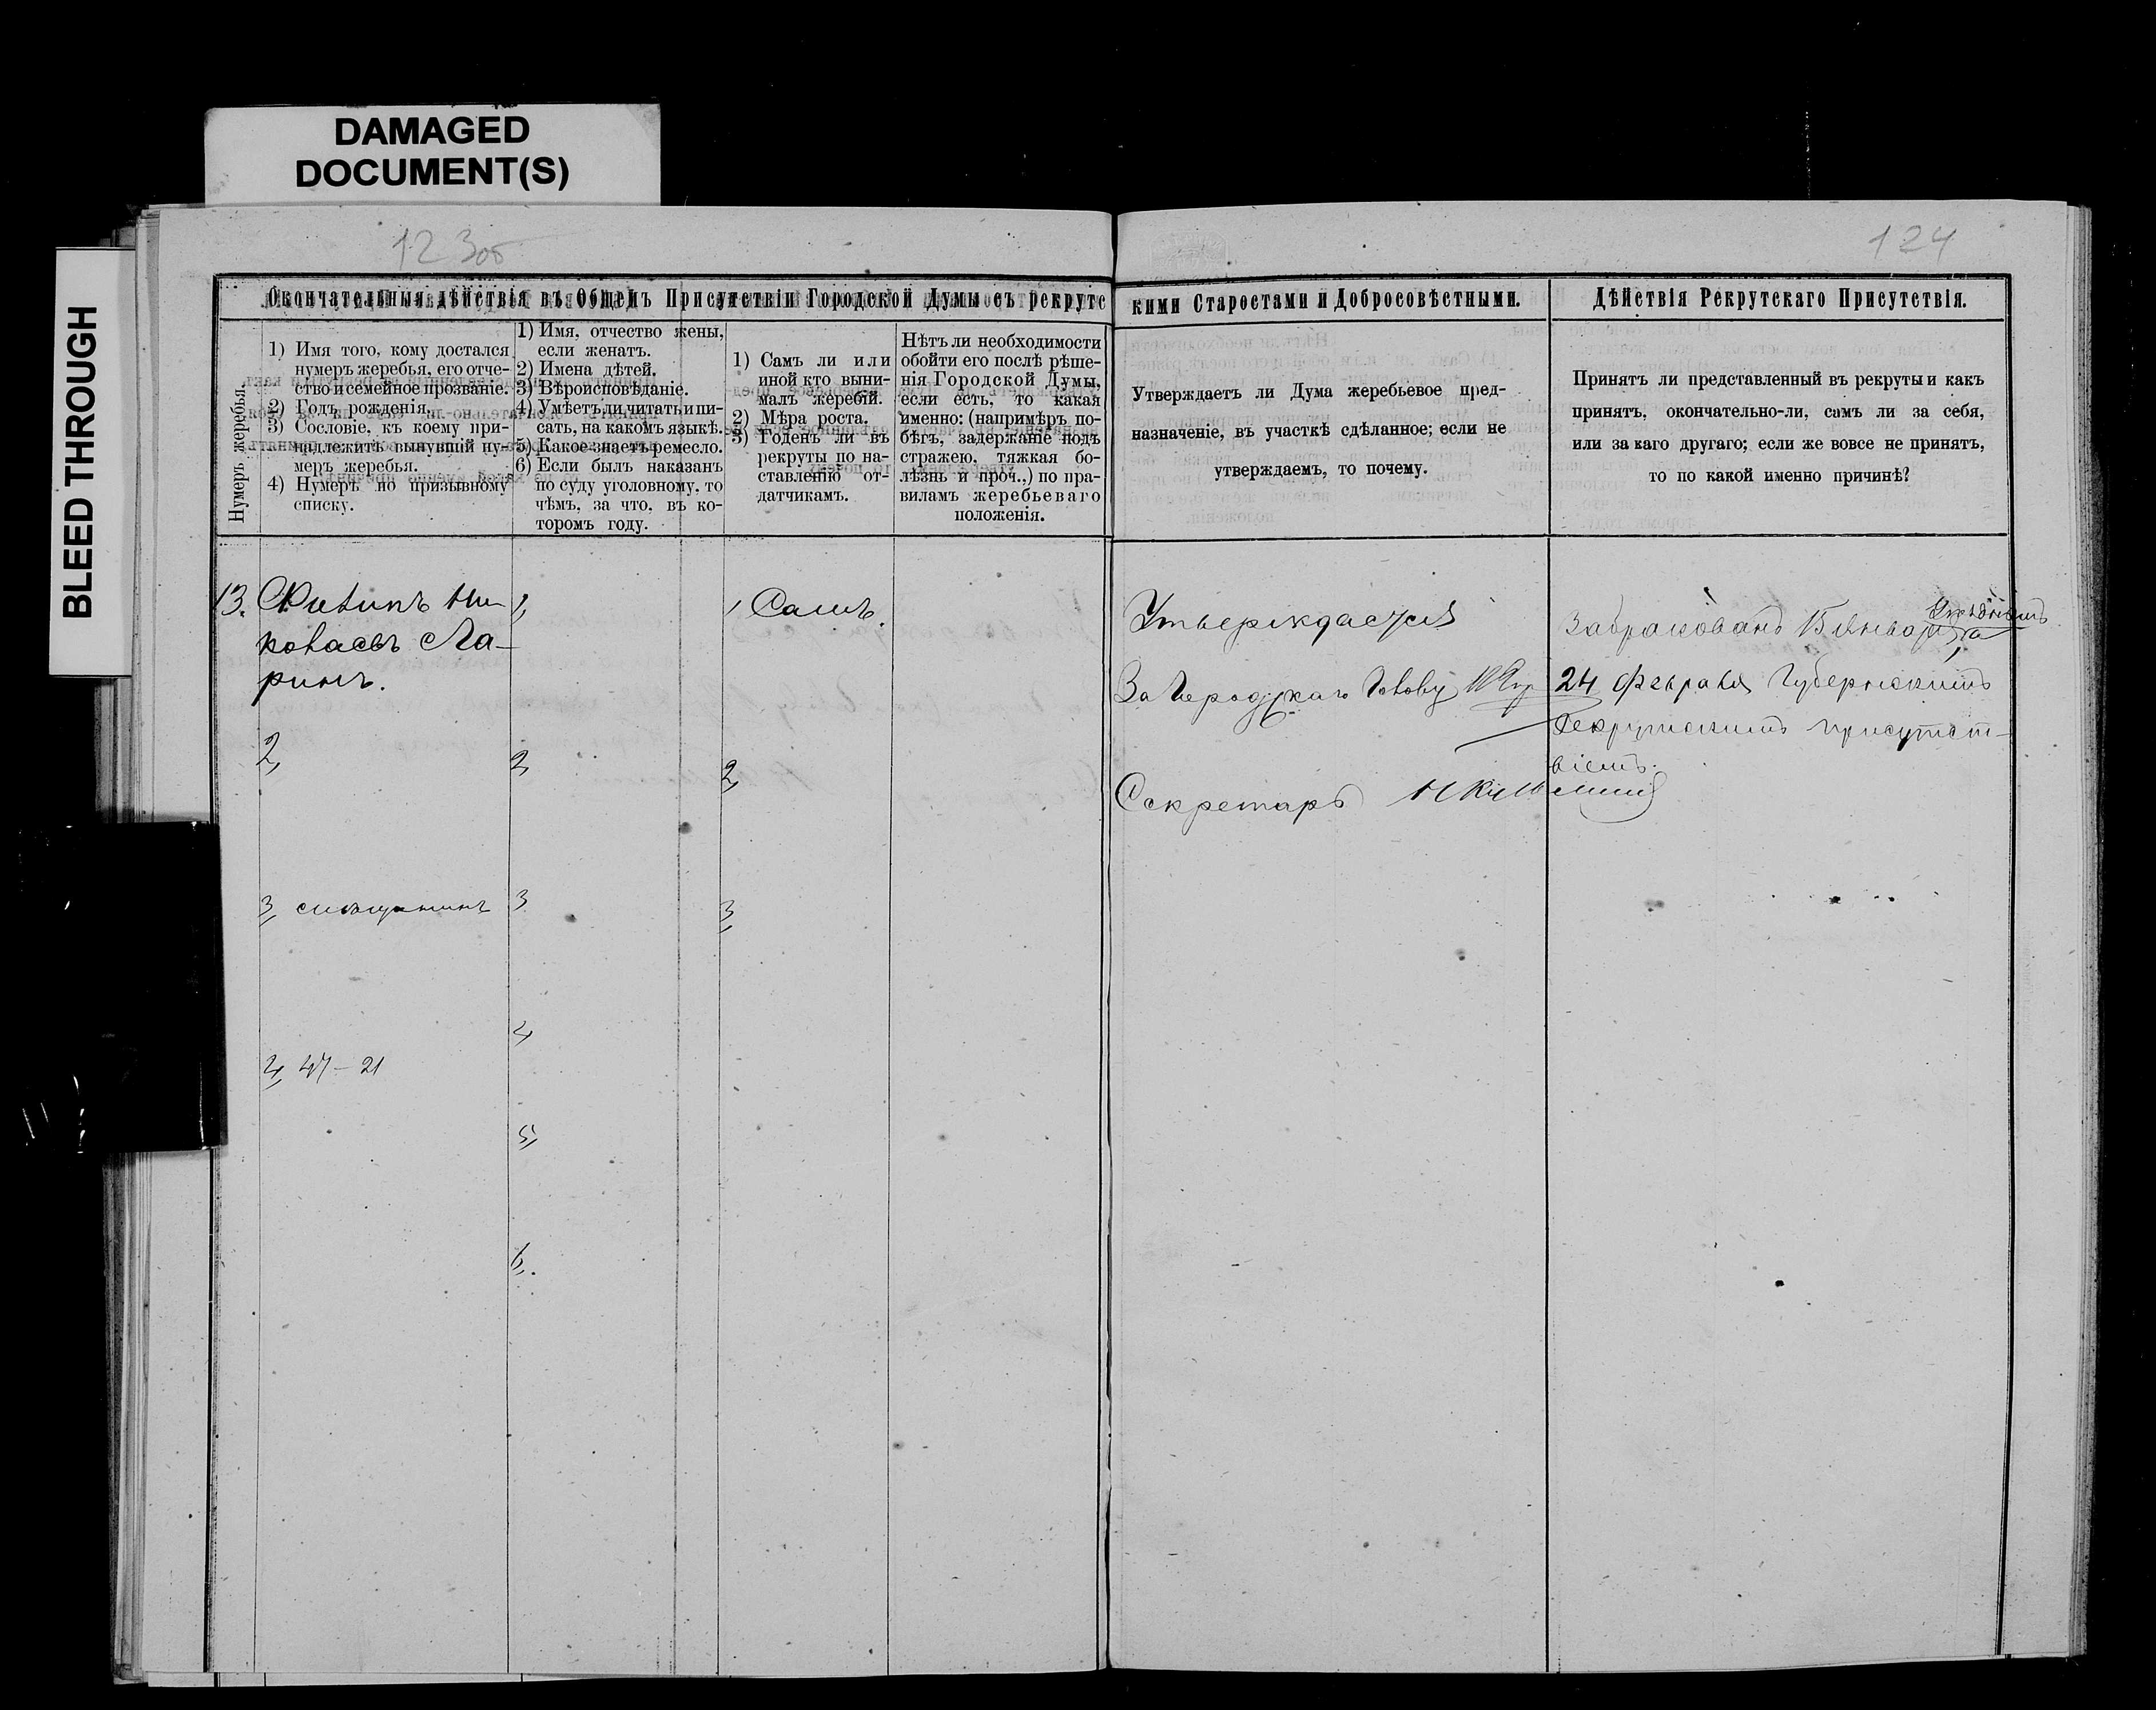 DAMAGED
DOCUMENT(S)
BLEED THROUGH
123об
124
Окончательныя дѣйствія въ Общемъ Присутствіи Городской Думы съ рекрутс
кими Старостами и Добросовѣстными.
Дѣйствія Рекрутскаго Присутствія.
Нумеръ жеребья.
1) Имя того, кому достался
нумеръ жеребья, его отче-
ство и семейное прозваніе.
2) Годъ рожденія.
3) Сословіе, къ коему при-
надлежитъ вынувшій ну-
меръ жеребья.
4) Нумеръ по призывному
списку.
1) Имя, отчество жены,
если женатъ.
2) Имена дѣтей.
3) Вѣроисповѣданіе.
4) Умѣетъ ли читать и пи-
сать, на какомъ языкѣ.
5) Какое знаетъ ремесло.
6) Если былъ наказанъ
по суду уголовному, то
чѣмъ, за что, въ ко-
торомъ году.
1) Самъ ли или
иной кто выни-
малъ жеребій.
2) Мѣра роста.
3) Годенъ ли въ
рекруты по на-
ставленію от-
датчикамъ.
Нѣтъ ли необходимости
обойти его послѣ рѣше-
нія Городской Думы,
если есть, то какая
именно: (напримѣръ по-
бѣгъ, задержаніе подъ
стражею, тяжкая бо-
лѣзнь и проч.,) по пра-
виламъ жеребьеваго
положенія.
Утверждаетъ ли Дума жеребьевое пред-
назначеніе, въ участкѣ сдѣланное; если не
утверждаемъ, то почему.
Принятъ ли представленный въ рекруты и какъ
принятъ, окончательно-ли, самъ ли за себя,
или за каго другаго; если же вовсе не принятъ,
то по какой именно причинѣ?
13. Филипъ Ни-
колаевъ Ла-
ринъ.
2,
3, мѣщанинъ
4, 47 – 21
1,
2,
3
4,
5,
6,.
1 Самъ.
2,
3,
Утверждается
За Городскаго Голову
Секретарь
Забракованъ 15 января Уѣзднымъ
24 февраля Губернскимъ
Рекрутскимъ присутст-
віемъ.